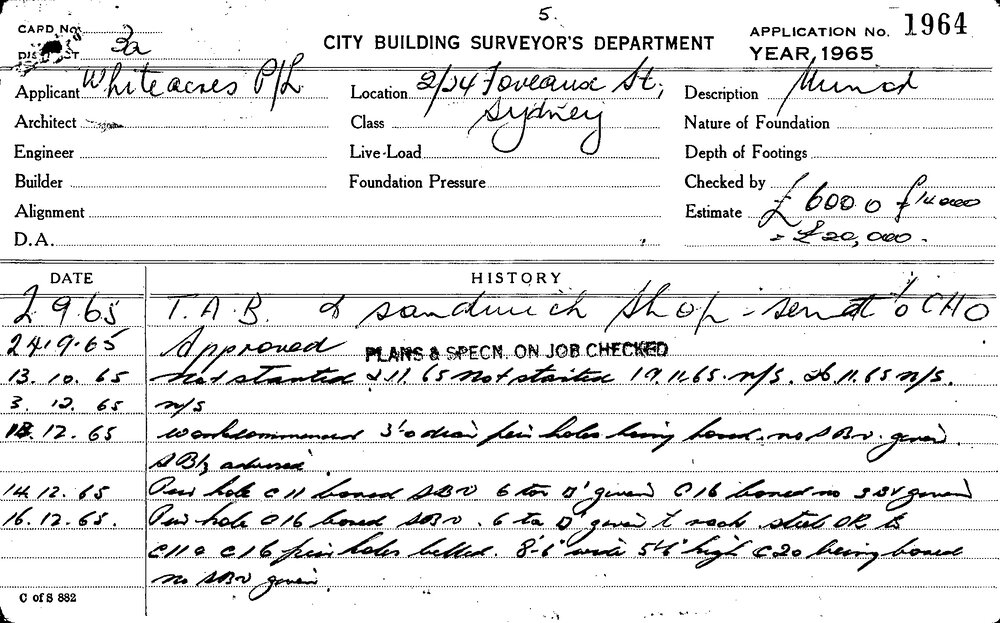 5.
CARD No.
3a
DISTRICT
CITY BUILDING SURVEYOR'S DEPARTMENT
APPLICATION No. 1964
YEAR, 1965
Applicant Whiteacres P/L
Location 2/24 Foveaux St,
Sydney
Description
Architect
Class
Nature of Foundation
Engineer
Live-Load
Depth of Footings
Builder
Foundation Pressure
Checked by
Alignment
Estimate £ 6000 £14000
= £20,000.
D.A.
DATE
HISTORY
2 9.65 T.A.B. & sandwich shop - sent to CHO
24.9.65 Approved PLANS & SPECN. ON JOB CHECKED
13.10.65 Not started 2.11.65 Not started 19.11.65. n/S. 26.11.65 n/S.
3.12.65 n/S
13.12.65 work commenced 3'-0 diam pier holes being bored. no SBV. given.
advised
14.12.65 Pier hole C11 bored SBV 6 ton given C16 bored no SBV given
16.12.65. Pier hole C16 bored SBV. 6 ton given rock steel OK
C11 C16 pier holes belled. 8'-6" wide 5'6" high C20 being bored
no SBV given
C of S 882